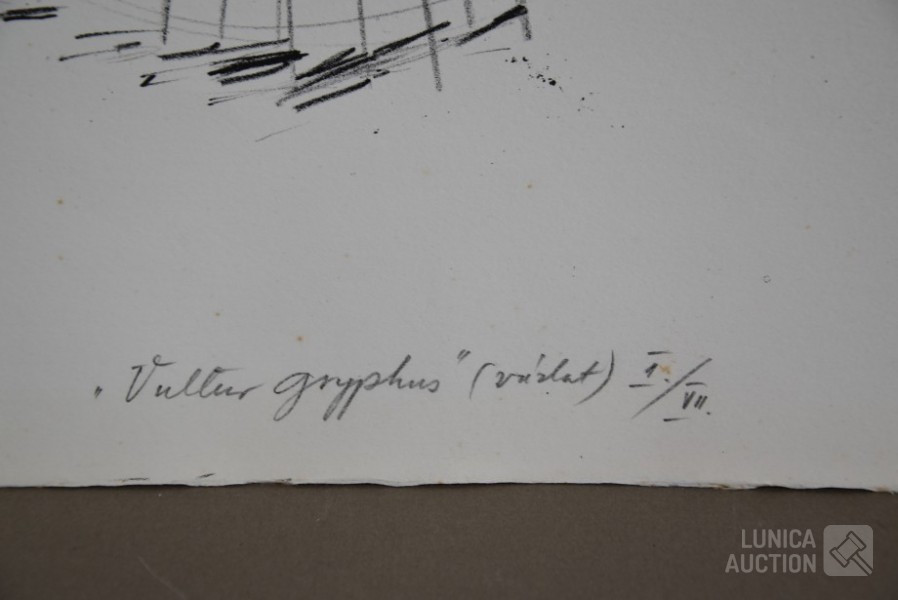 „Vultur gryphus” (vázlat) I./VII.
LUNICA
AUCTION